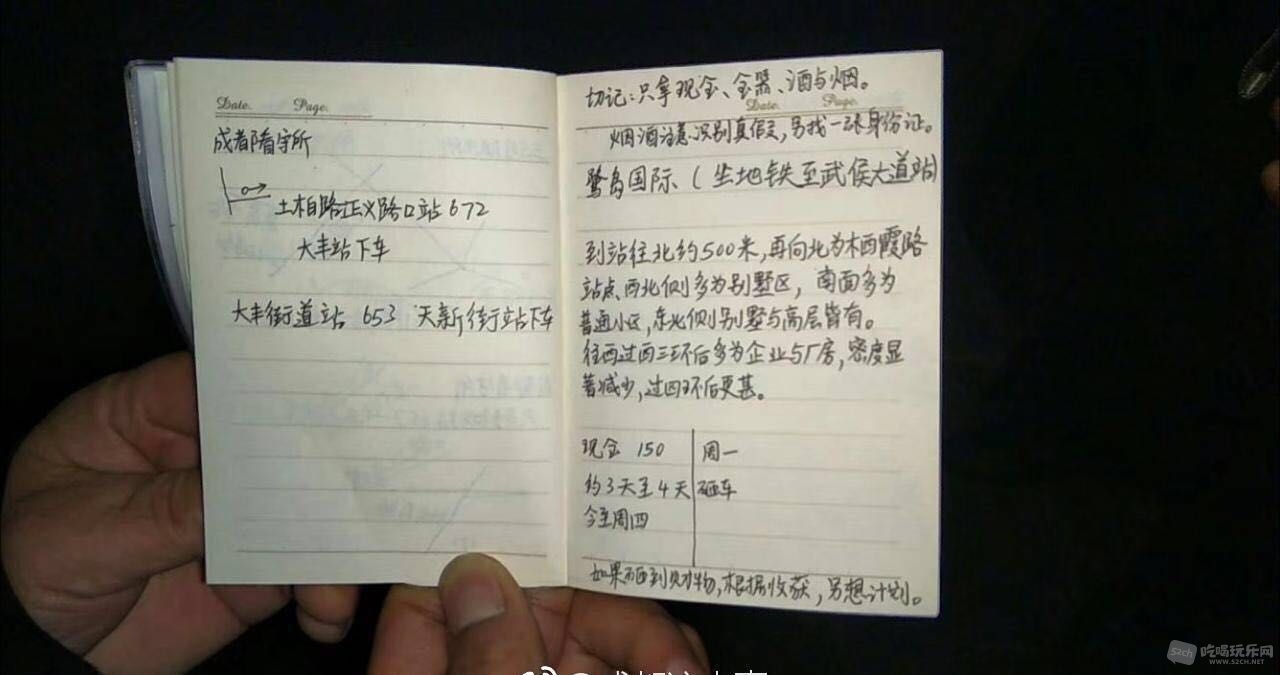 Date. Page.
成都看守所
土柏路正义路口站 672
大丰站下车
大丰街道站 653 天新街站下车
切记：只拿现金、金器、酒与烟。
Date. Page.
烟酒注意识别真假，另找一张身份证。
鹭岛国际、（坐地铁至武侯大道站）
到站往北约500米，再向北为栖霞路
站点西北侧多为别墅区，南面多为
普通小区，东北侧别墅与高层皆有。
往西过西三环后多为企业与厂房，密度显
著减少，过四环后更甚。
现金 150 周一
约3天至4天 砸车
今至周四
如果砸到财物，根据收获，另想计划。
52ch 吃喝玩乐网
WWW.52CH.NET